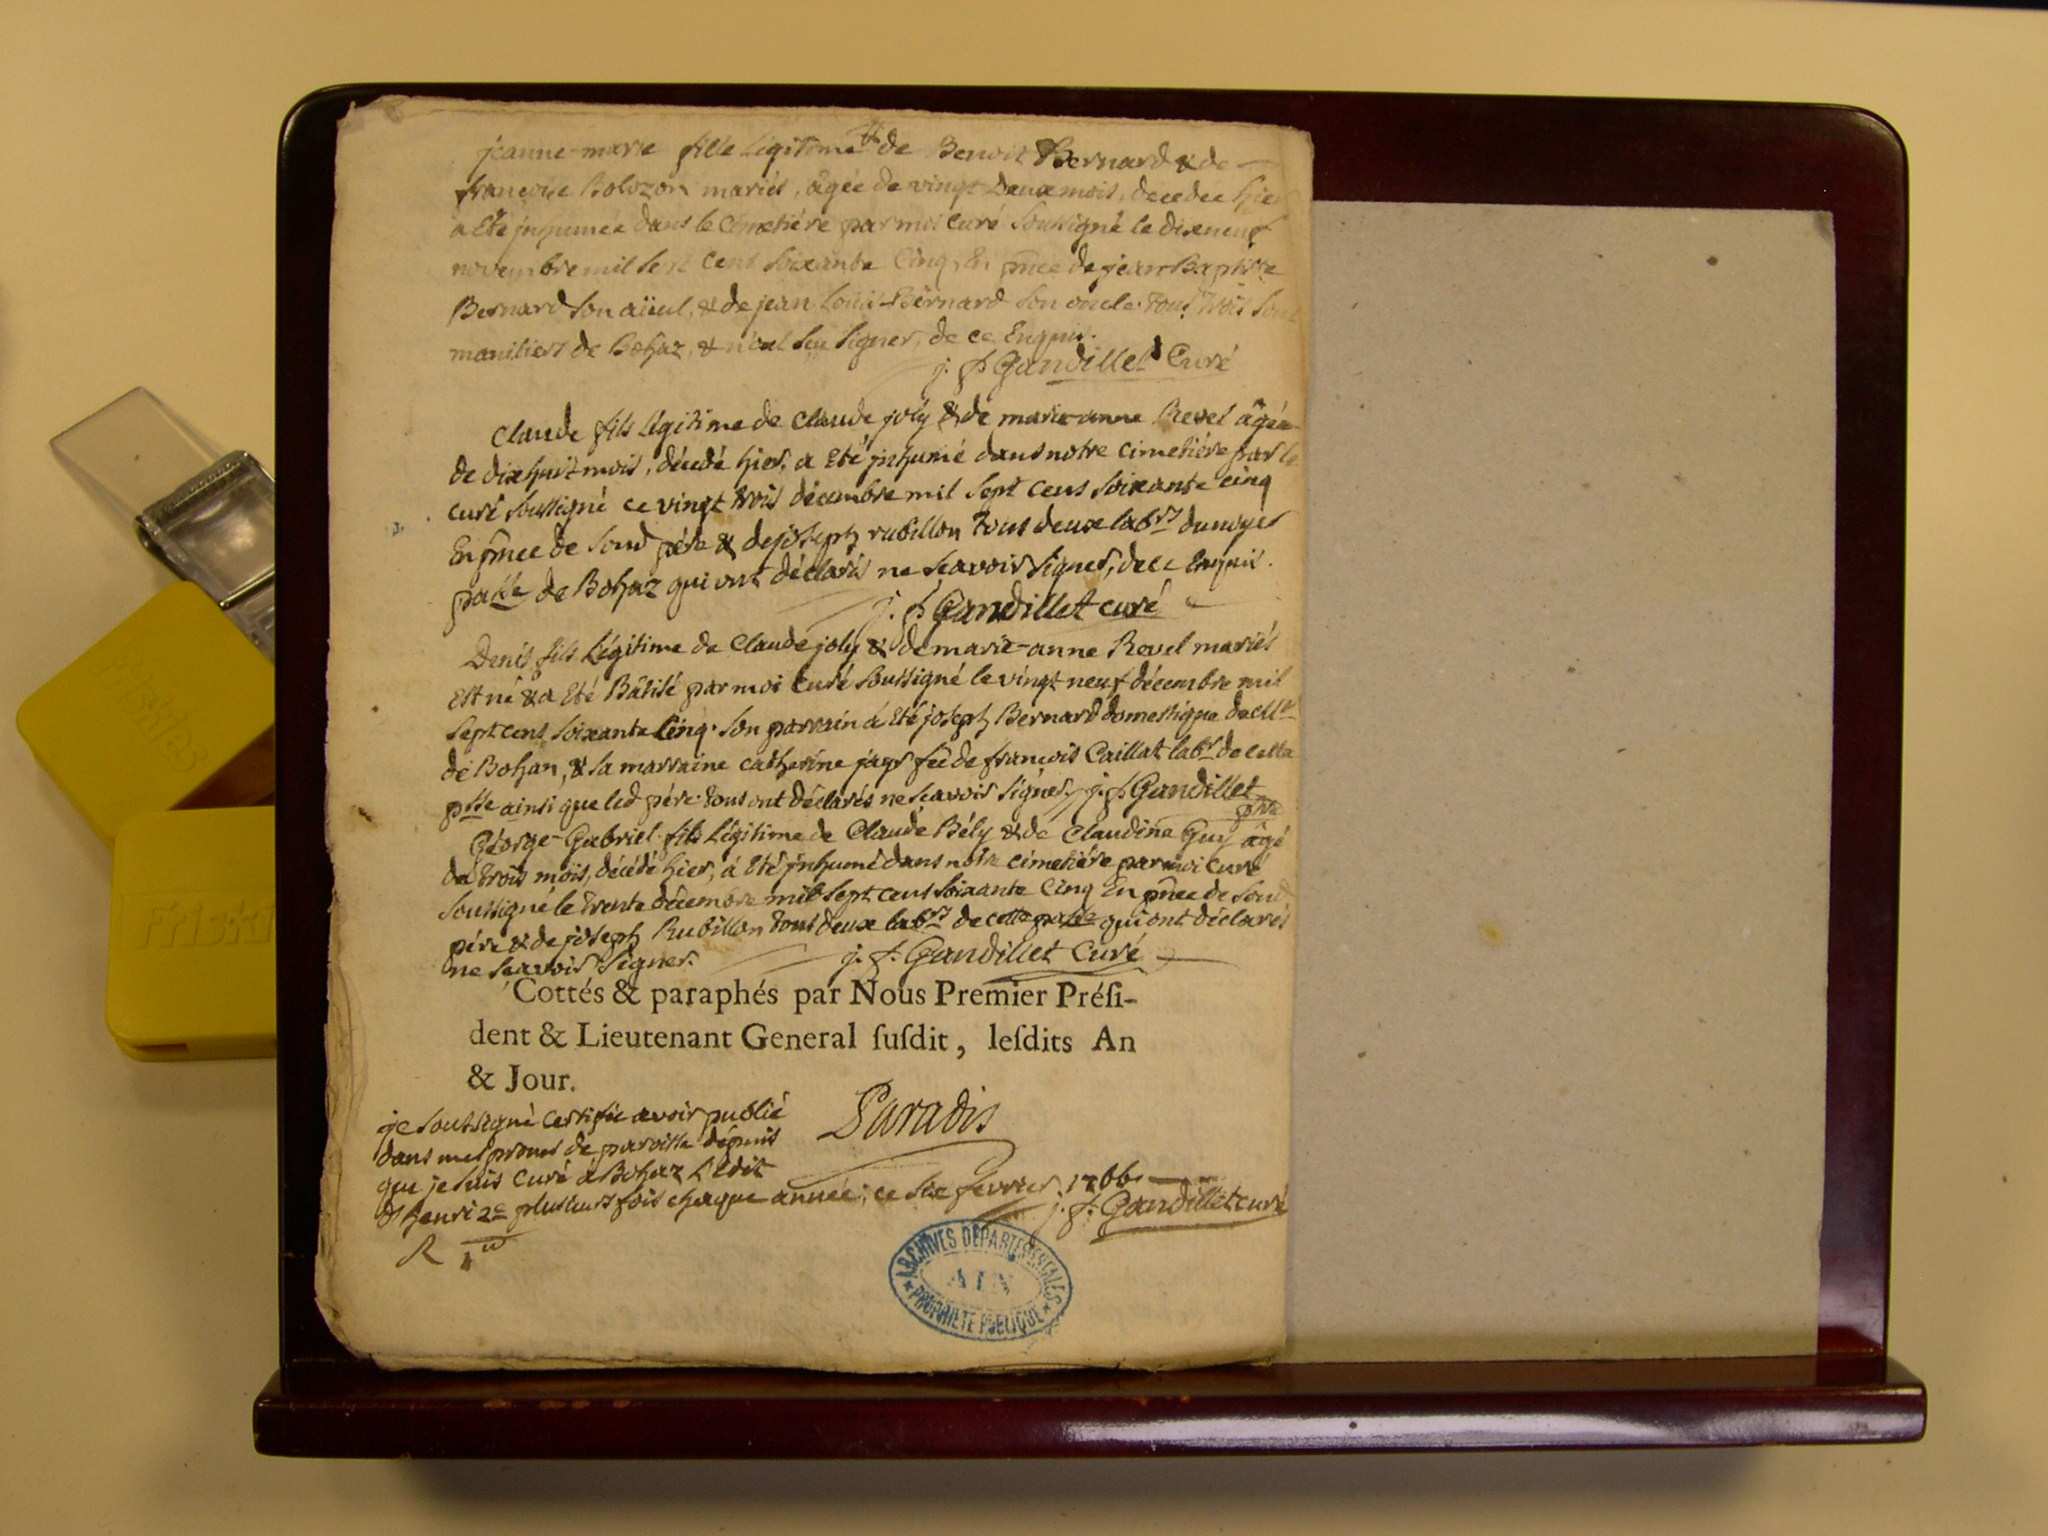 jeanne-marie fille légitime de Benoit Bernard & de
françoise Bolozon mariés, âgée de vingt deux mois, decedée hier
a été jnhumée dans le cimetiére par moi curé soussigné le dixneuf
novembre mil sept cens soixante cinq, En pnce de jean Baptiste
Bernard son aïeul, & de jean Loüis Bernard son oncle. tous trois sont
de Bohaz, & n'ont sçu signer, de ce Enquis.
j. f. Gandillet Curé
Claude fils légitime de claude joly & de marie-anne Revel âgé
de dixhuit mois, décédé hier, a été jnhumé dans notre cimetiére par le
curé soussigné ce vingt trois décembre mil sept cens soixante cinq
En pnce de sond père & de joseph rubillon tous deux labrs du noyer
passe de Bohaz qui ont déclarés ne sçavoir signer, de ce Enquis.
j. f. Gandillet curé
Denis fils légitime de Claude joly & de marie-anne Revel mariés
est né & a été Bâtisé par moi curé soussigné le vingt neuf décembre mil
sept cens soixante cinq. son parrain á été joseph Bernard domestique de
de Bohan, & sa marraine catherine fe de françois Caillat labr de cette
psse ainsi que led pére. tous ont déclarés ne sçavoir signer j. f. Gandillet
ptre
George-Gabriel fils légitime de Claude Bély & de Claudine Guy âgé
de trois mois, décédé hier, á été jnhumé dans notre cimetiére par moi curé
soussigné le trente décembre mil sept cens soixante cinq En pnce de sond
pére & de joseph Rubillon tous deux labrs de cette passe qui ont déclarés
ne sçavoir signer. j. f. Gandillet Curé
Cottés & paraphés par Nous Premier Préſi-
dent & Lieutenant General ſuſdit, leſdits An
& Jour.
Paradis
je soussigné certifie avoir publié
dans mes prones de paroisse dépuis
que je suis curé á Bohaz l'Edit
d'henri 2e plusieurs fois chaque année; ce six fevrier 1766
j. f. Gandillet curé
R
ARCHIVES DÉPARTEMENTALES
AIN
PROPRIÉTÉ PUBLIQUE
Friskies
Friski